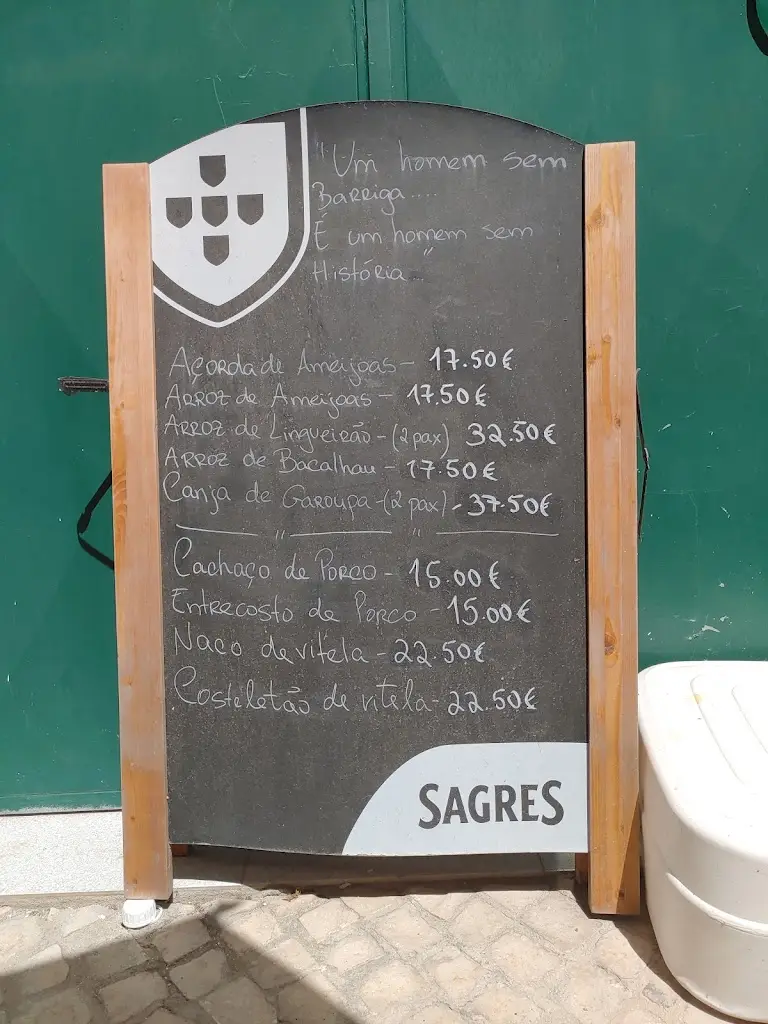 "Um homem sem
Barriga....
É um homem sem
História..."
Açorda de Ameijoas - 17.50€
Arroz de Ameijoas - 17.50€
Arroz de Lingueirão - (2 pax) 32.50€
Arroz de Bacalhau - 17.50€
Canja de Garoupa - (2 pax) - 37.50€
Cachaço de Porco - 15.00€
Entrecosto de Porco - 15.00€
Naco de vitela - 22.50€
Costeletão de vitela - 22.50€
SAGRES